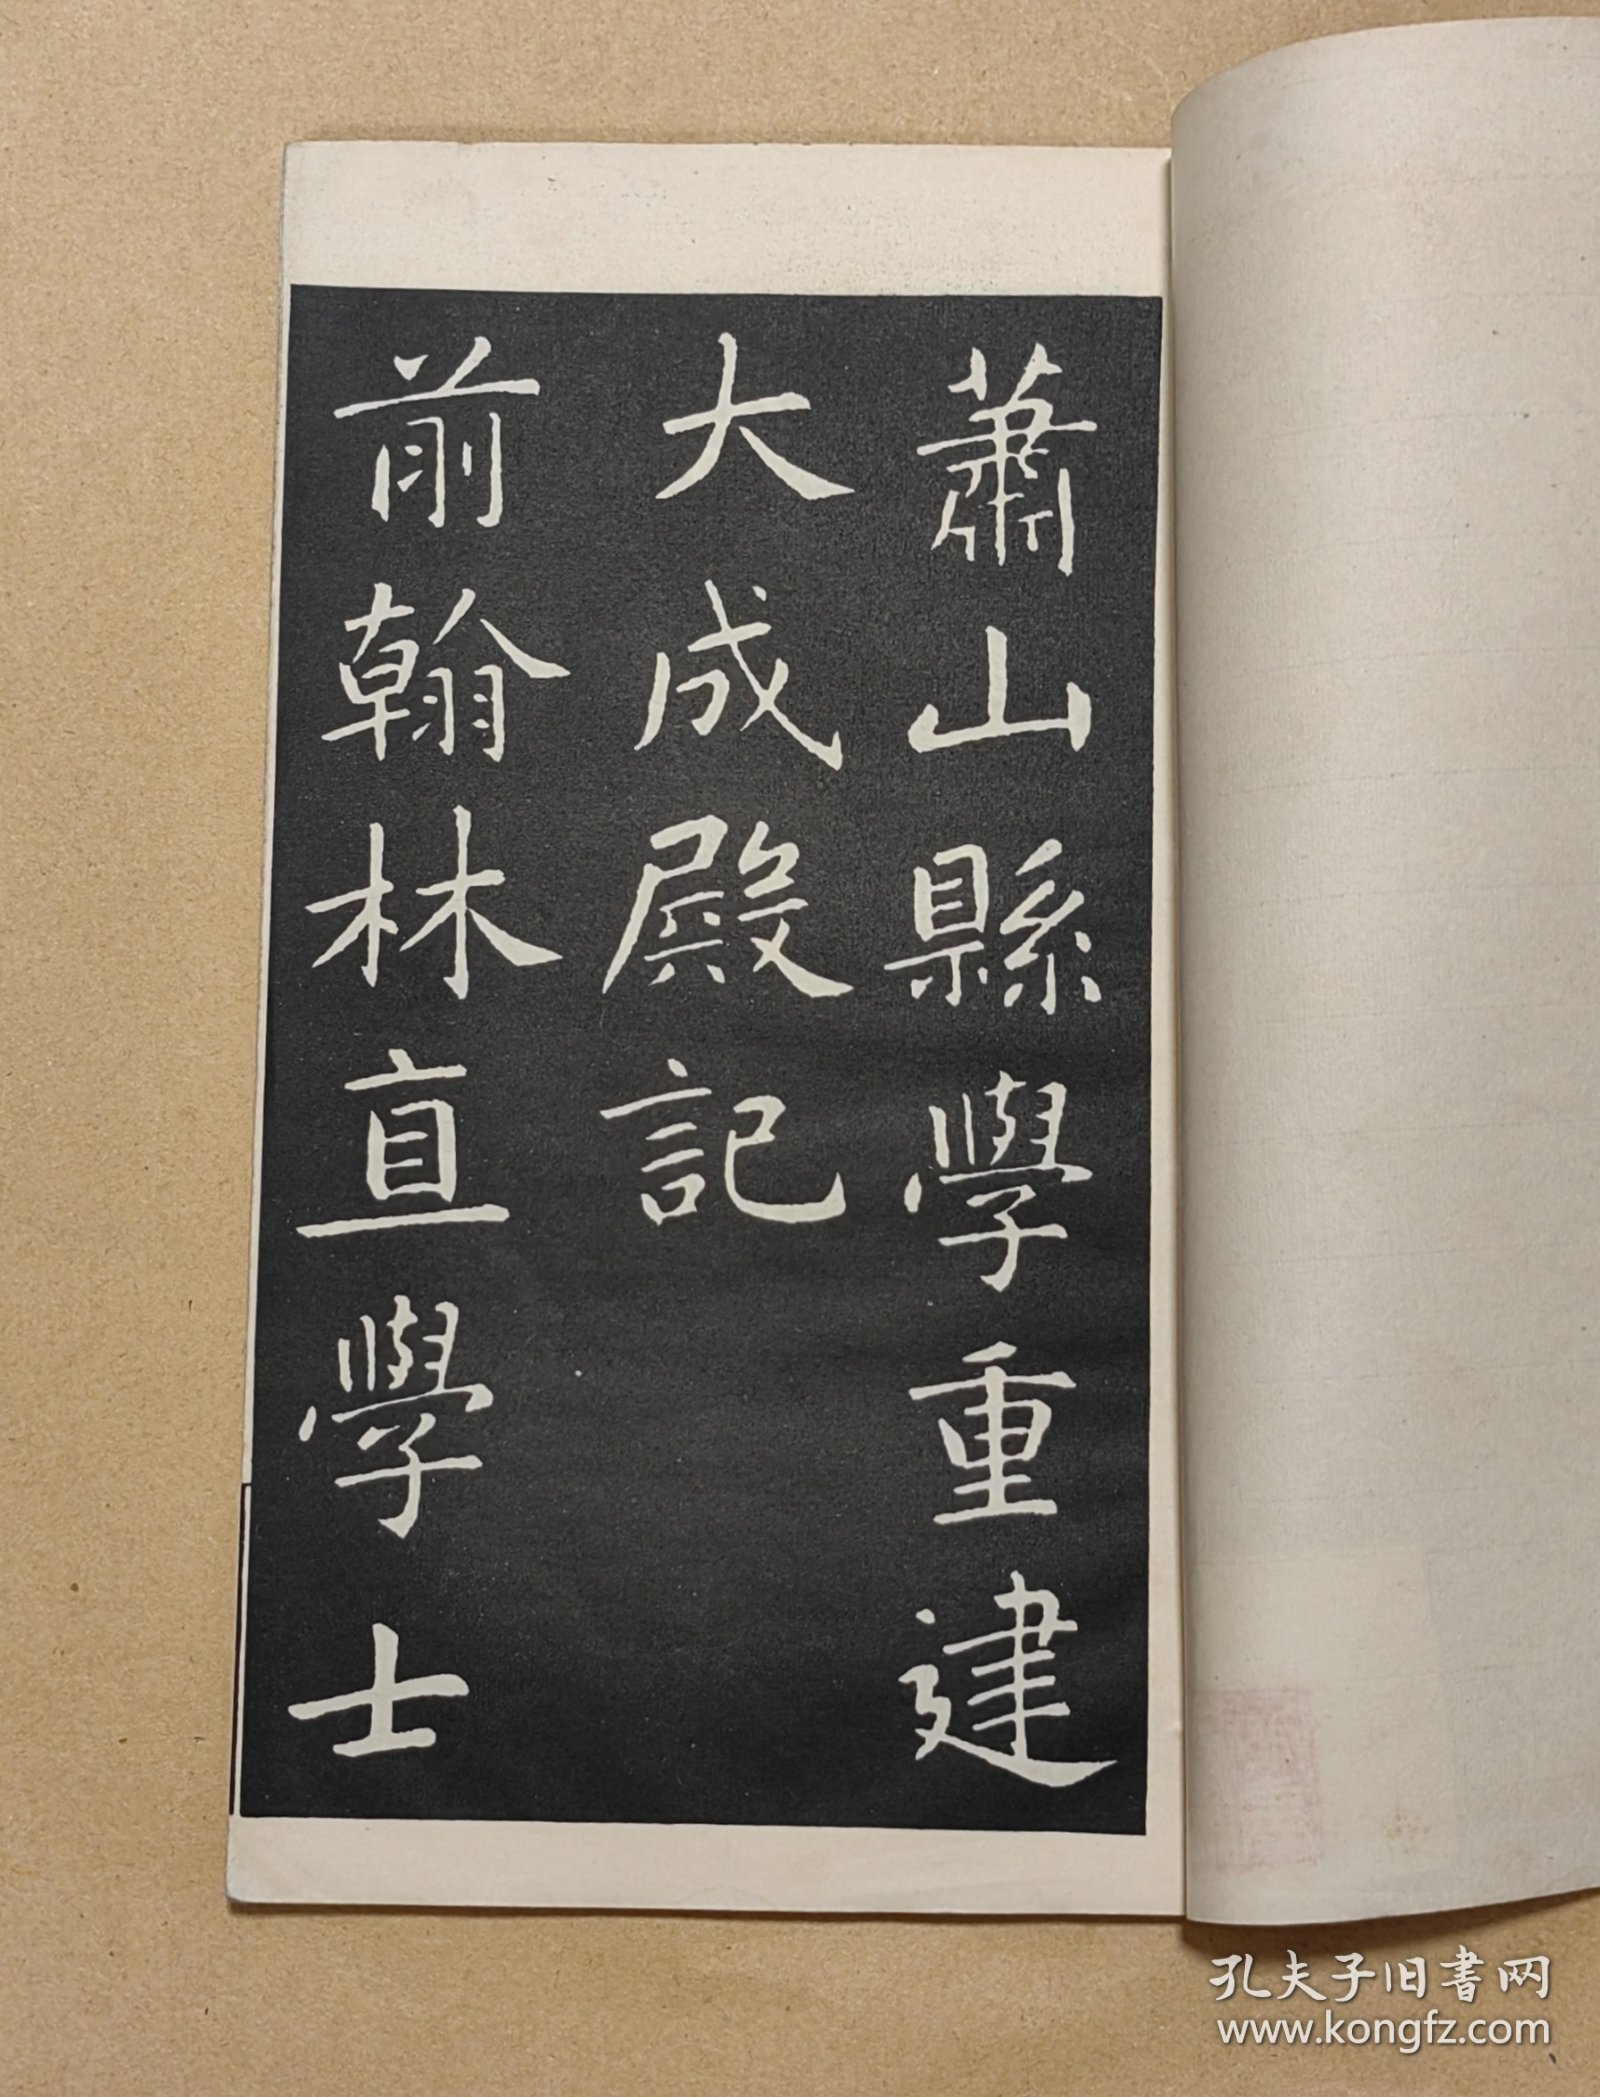 蕭山縣學重建
大成殿記
前翰林直學士
孔夫子旧书网
www.kongfz.com